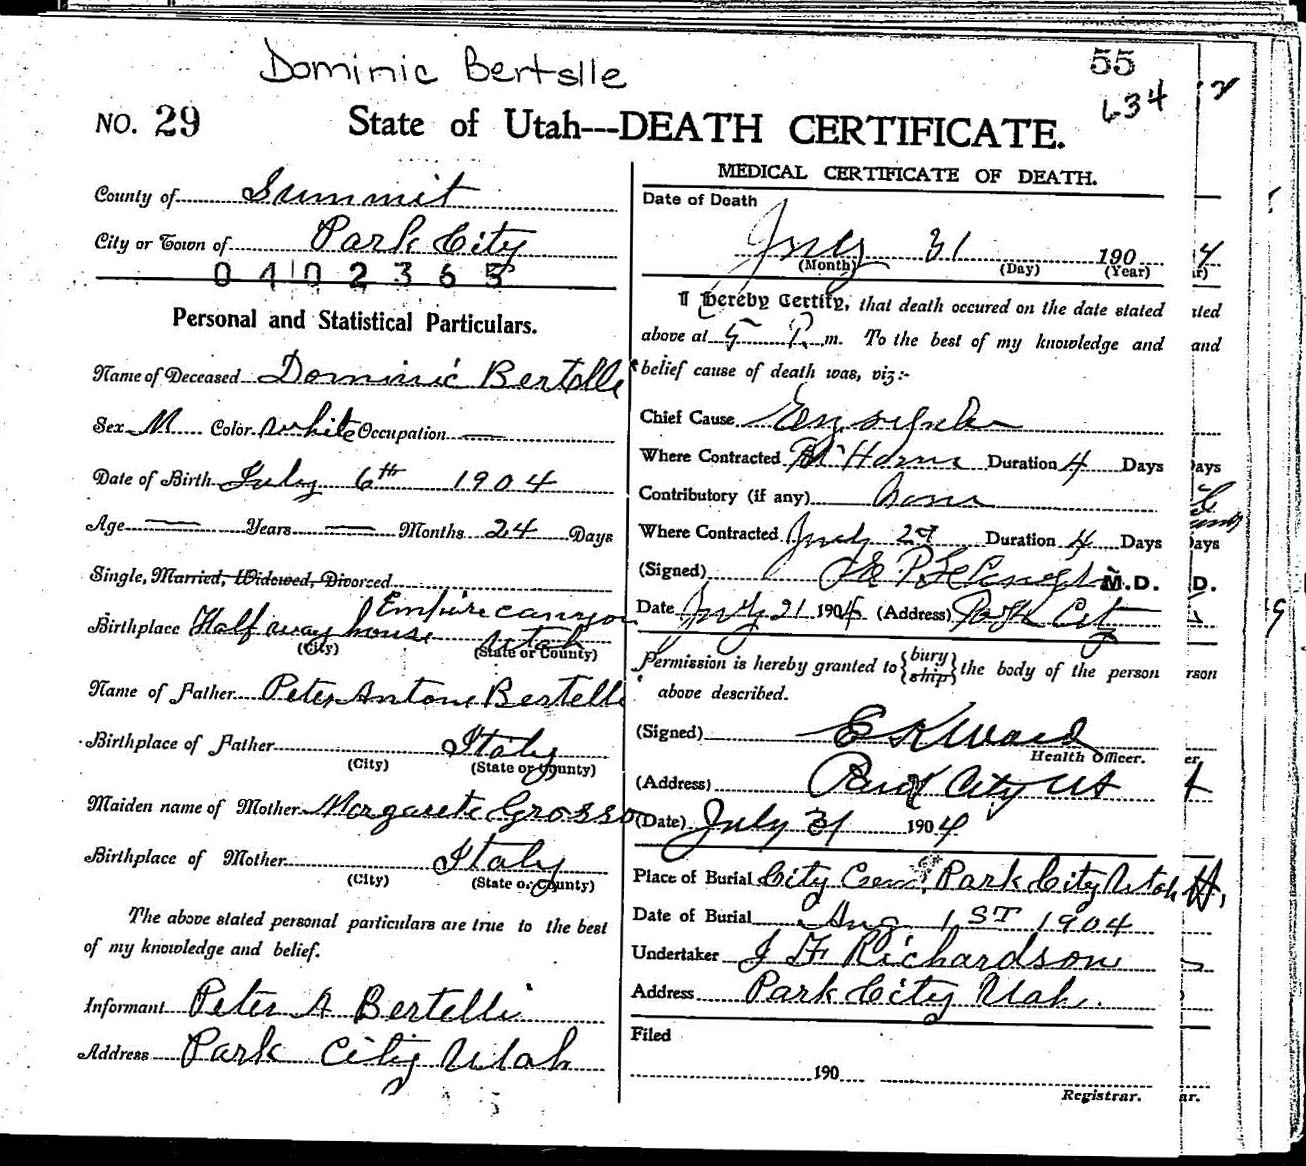 Dominic Bertslle
55
634
NO. 29 State of Utah---DEATH CERTIFICATE.
County of Summit
City or Town of Park City
0 4 0 2 3 6 5
Personal and Statistical Particulars.
Name of Deceased Dominic Bertolli
Sex M Color white Occupation —
Date of Birth July 6th 1904
Age — Years — Months 24 Days
Single, Married, Widowed, Divorced
Empire canyon
Birthplace Half way house Utah
(City) (State or County)
Name of Father Peter Antone Bertelli
Birthplace of Father Italy
(City) (State or County)
Maiden name of Mother Margarete Grosso
Birthplace of Mother Italy
(City) (State or County)
The above stated personal particulars are true to the best
of my knowledge and belief.
Informant Peter A Bertelli
Address Park City Utah
MEDICAL CERTIFICATE OF DEATH.
Date of Death
July 31 1904
(Month) (Day) (Year)
I Hereby Certify, that death occured on the date stated
above at 5 P. m. To the best of my knowledge and
belief cause of death was, viz:-
Chief Cause
Where Contracted At Home Duration 4 Days
Contributory (if any) None
Where Contracted July 27 Duration 4 Days
(Signed) M.D.
Date July 31 1904 (Address) Park City
Permission is hereby granted to {bury ship} the body of the person
above described.
(Signed) E K Ward
Health Officer.
(Address) Park City Ut
(Date) July 31 1904
Place of Burial City Cem. Park City Utah
Date of Burial Aug 1ST 1904
Undertaker J H Richardson
Address Park City Utah.
Filed
190
Registrar.